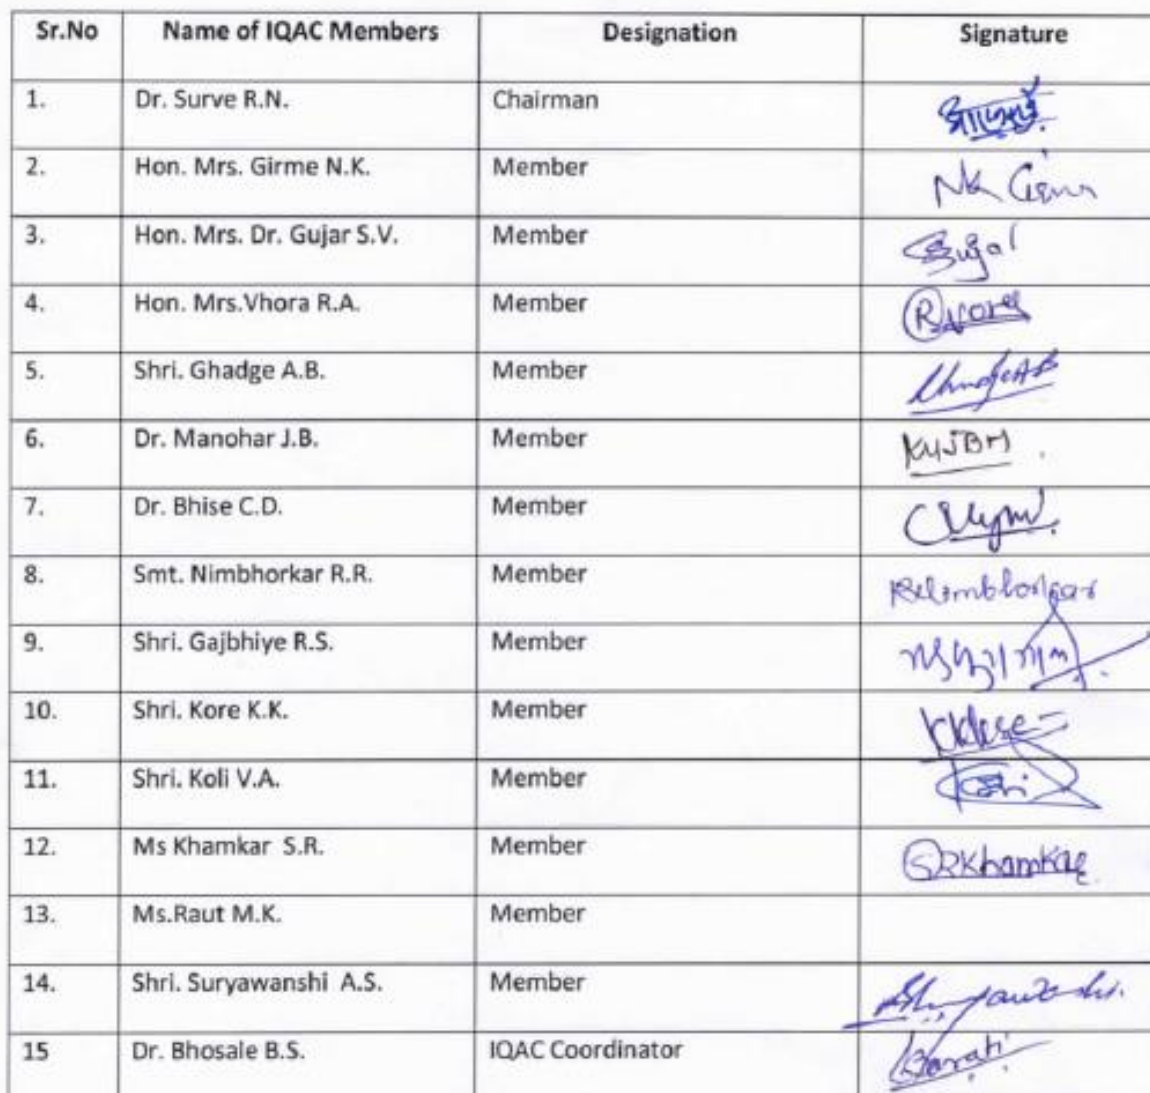 Sr.No Name of IQAC Members Designation Signature
1. Dr. Surve R.N. Chairman
2. Hon. Mrs. Girme N.K. Member NK
3. Hon. Mrs. Dr. Gujar S.V. Member
4. Hon. Mrs.Vhora R.A. Member
5. Shri. Ghadge A.B. Member
6. Dr. Manohar J.B. Member
7. Dr. Bhise C.D. Member
8. Smt. Nimbhorkar R.R. Member
9. Shri. Gajbhiye R.S. Member
10. Shri. Kore K.K. Member
11. Shri. Koli V.A. Member
12. Ms Khamkar S.R. Member SRKhamkar
13. Ms.Raut M.K. Member
14. Shri. Suryawanshi A.S. Member
15 Dr. Bhosale B.S. IQAC Coordinator